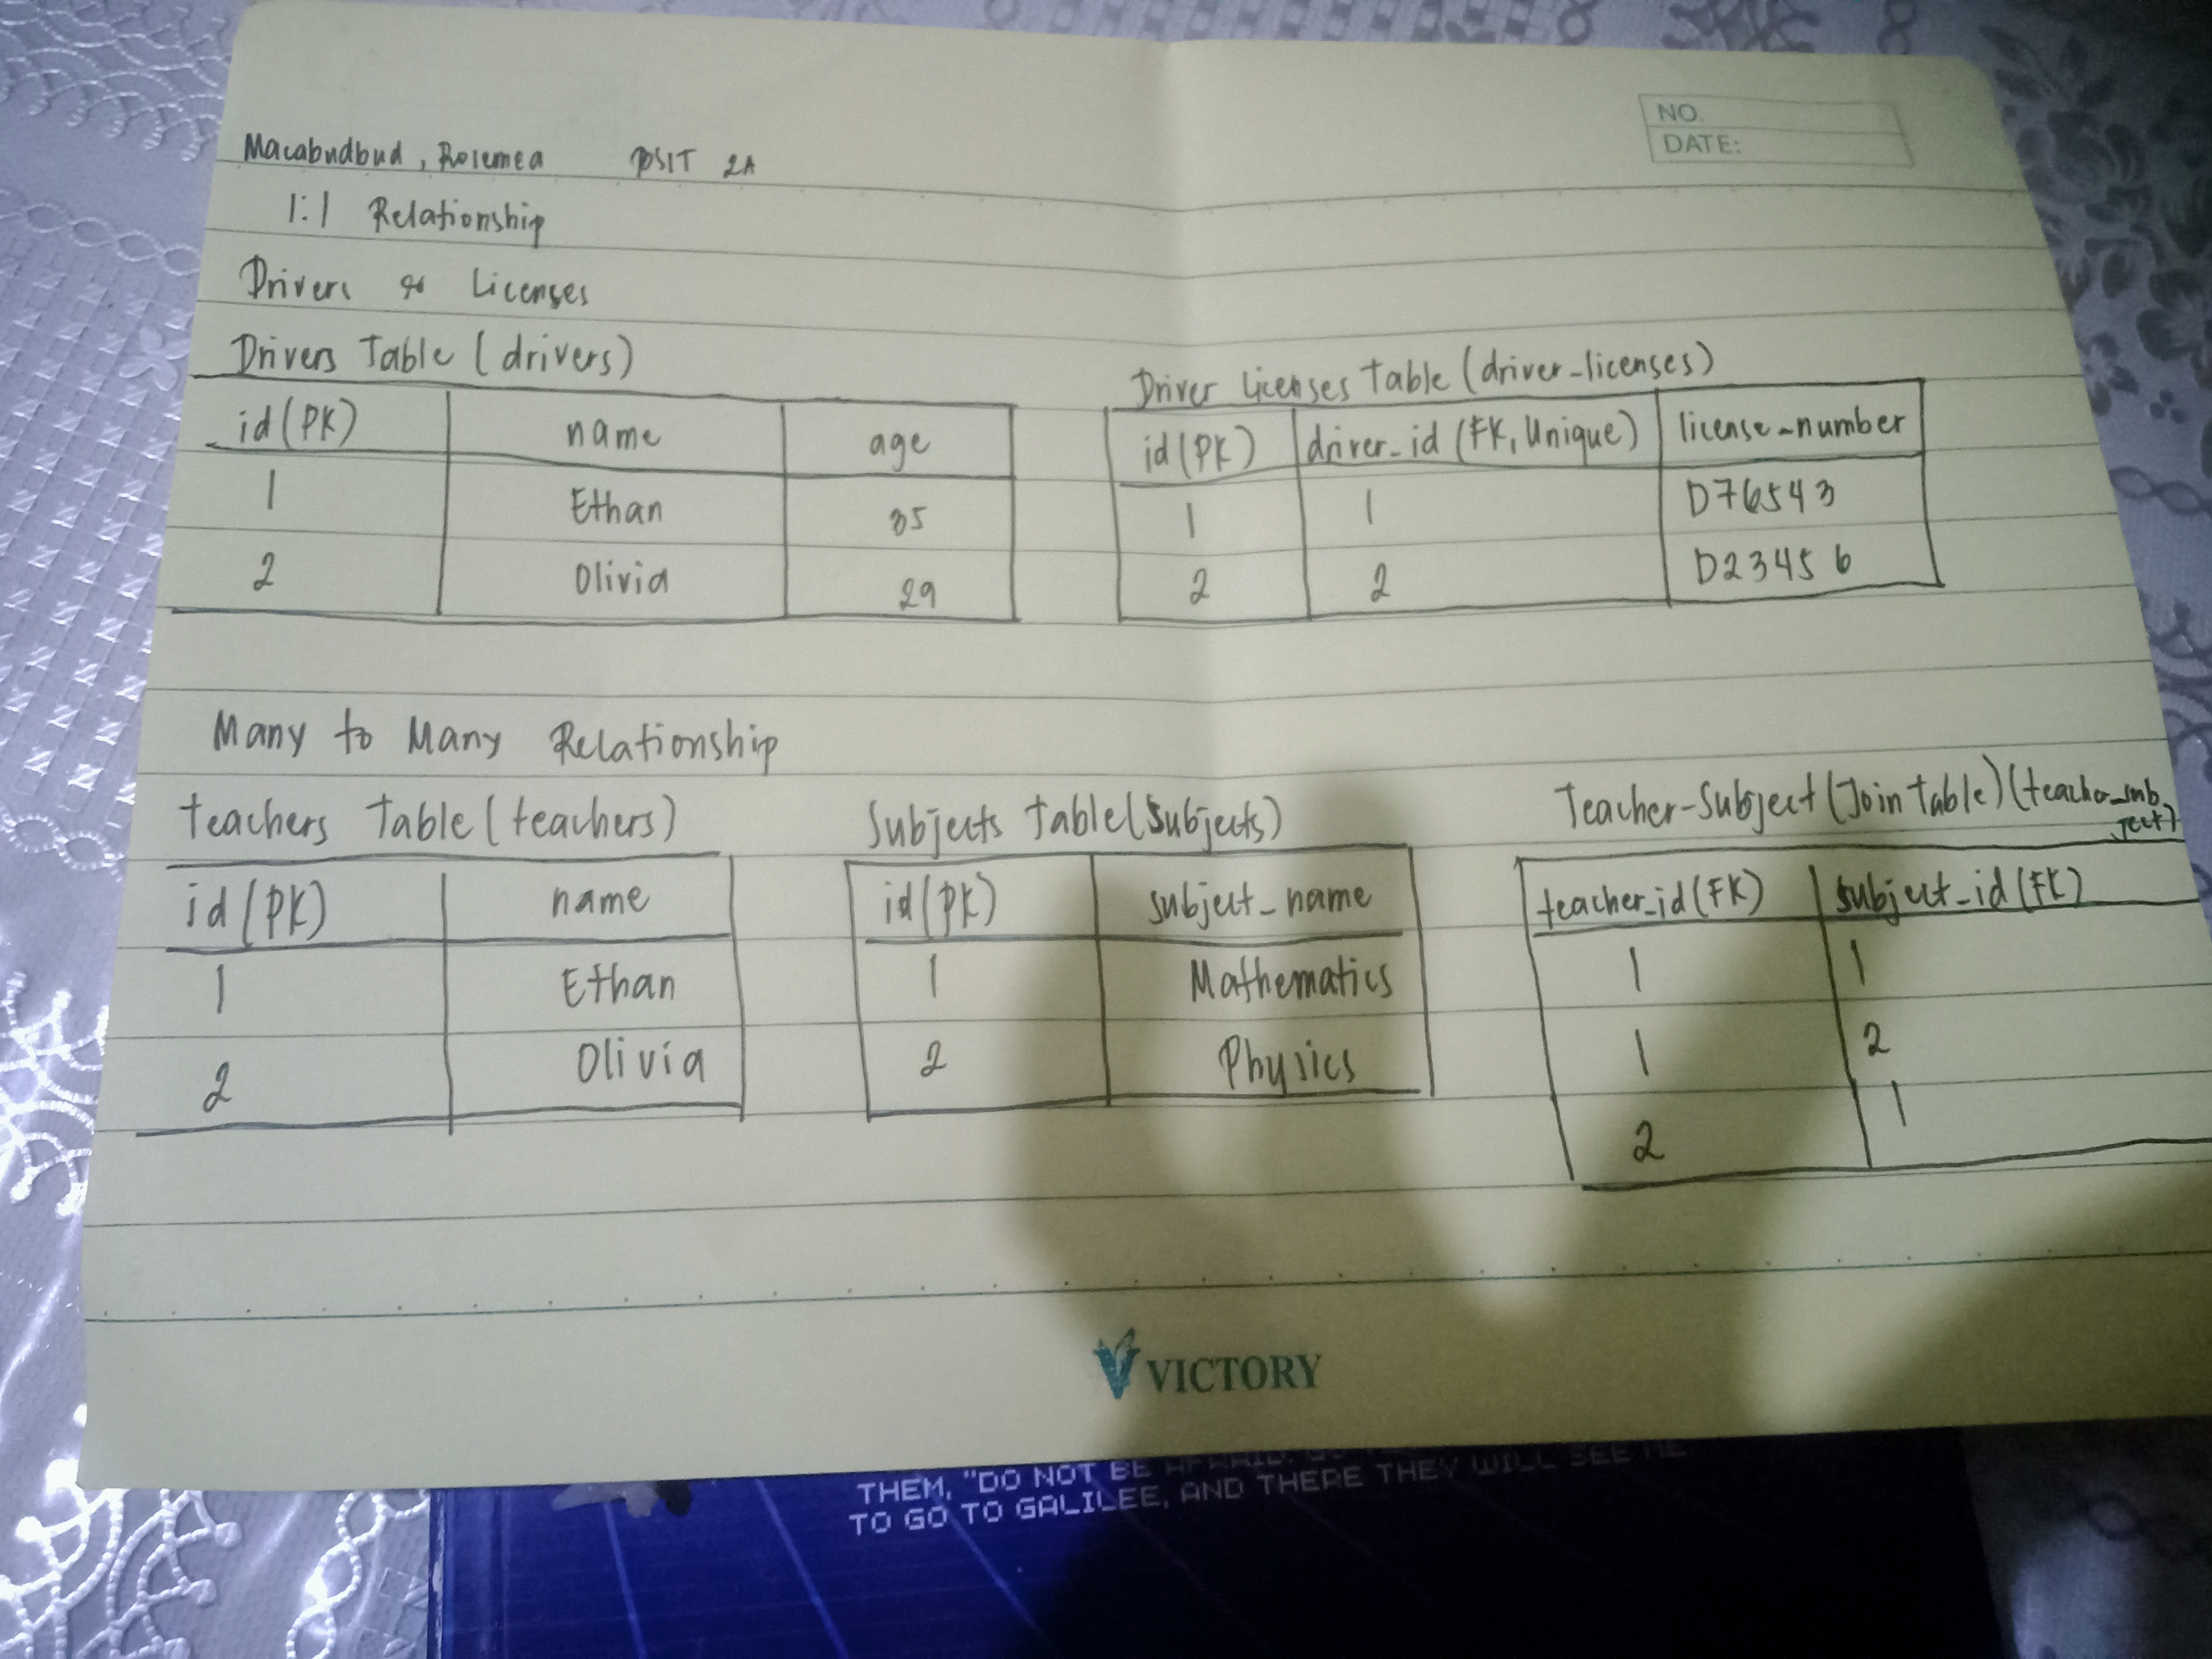 NO.
DATE:
Macabudbud, Rosemea BSIT 2A
1:1 Relationship
Drivers & Licenses
Drivers Table (drivers)
id (PK) name age
1 Ethan 35
2 Olivia 29
Driver Licenses Table (driver_licenses)
id (PK) driver_id (FK, Unique) license_number
1 1 D76543
2 2 D23456
Many to Many Relationship
Teachers Table (teachers)
id (PK) name
1 Ethan
2 Olivia
Subjects Table (subjects)
id (PK) subject_name
1 Mathematics
2 Physics
Teacher-Subject (Join Table) (teacher_sub
ject)
teacher_id (FK) subject_id (FK)
1 1
1 2
2 1
VICTORY
THEM, "DO NOT BE AFRAID.
TO GO TO GALILEE, AND THERE THEY WILL SEE ME